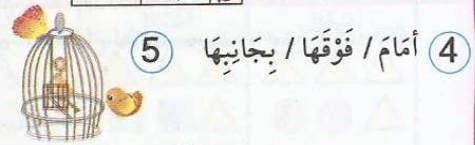 4 أمَامَ / فَوْقَهَا / بِجَانِبِهَا
5